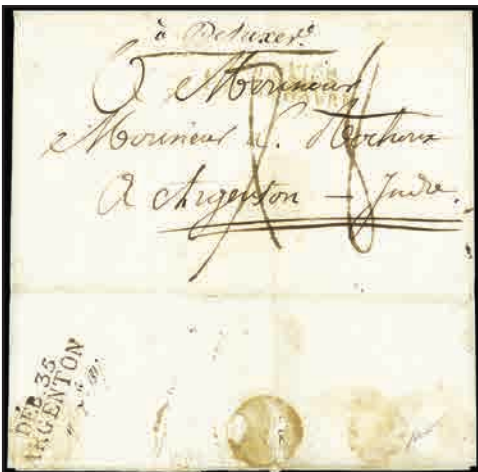 à Detaxer
A Monsieur
Monsieur L. Rochoux
A Argenton — Indre.
DEB. 35
ARGENTON